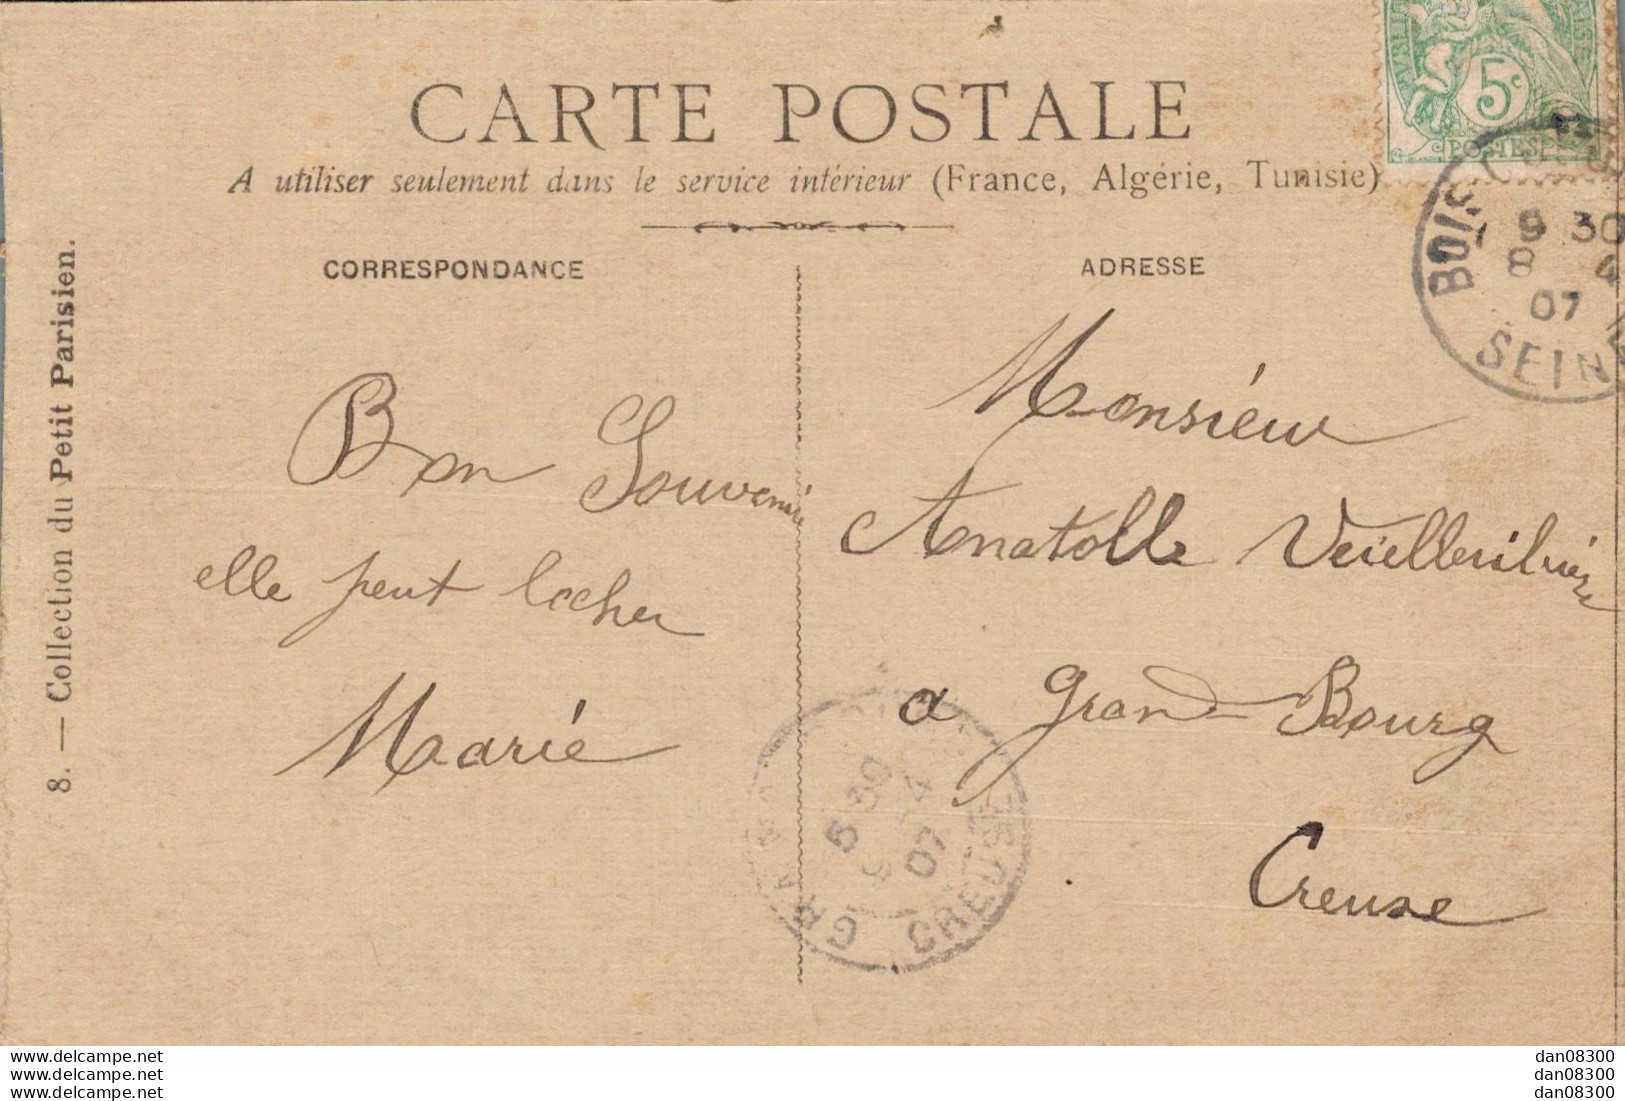 CARTE POSTALE
A utiliser seulement dans le service intérieur (France, Algérie, Tunisie)
5c
POSTES
BOIS
9 30
8 4
07
SEIN
CORRESPONDANCE
ADRESSE
8. — Collection du Petit Parisien.
Bon Souvenir
elle peut locher
Marie
Monsieur
Anatolle
a Grand Bourg
Creuse
5 30
9 4
07
CREUSE
www.delcampe.net
www.delcampe.net
www.delcampe.net
dan08300
dan08300
dan08300